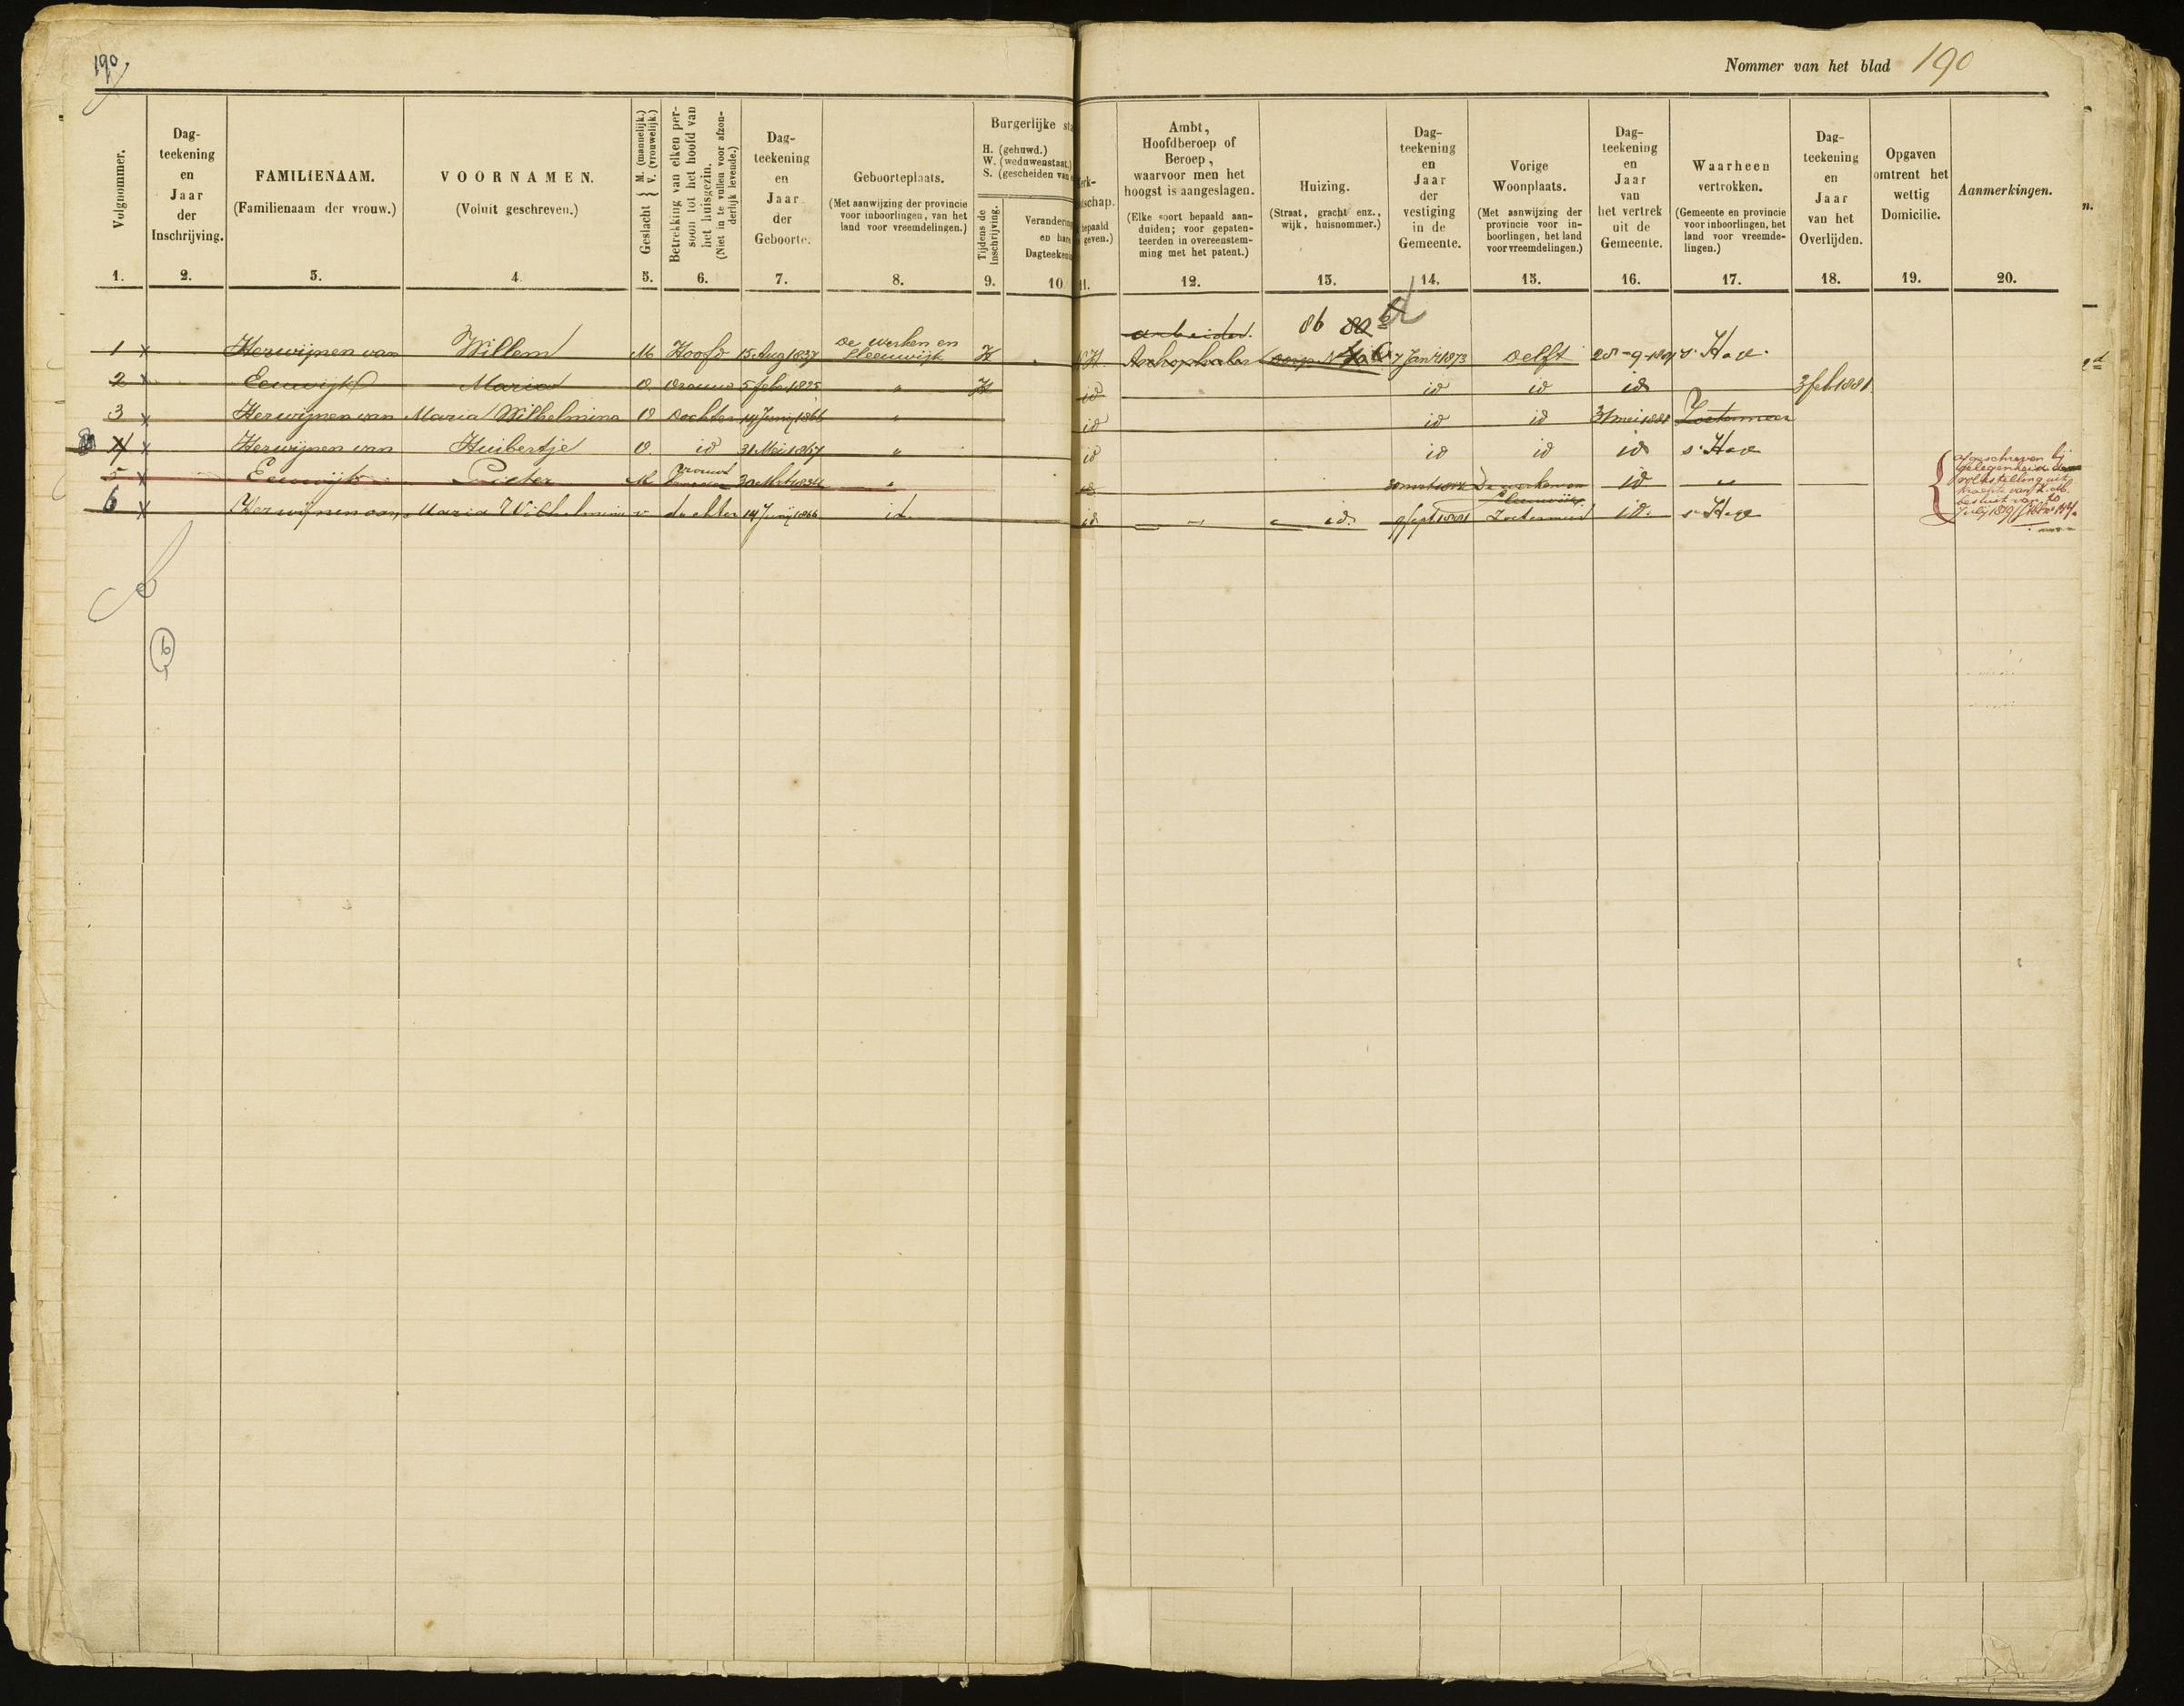 190
Nommer van het blad 190
Volgnommer.
1.
Dag-
teekening
en
Jaar
der
Inschrijving.
2.
FAMILIENAAM.
(Familienaam der vrouw.)
3.
VOORNAMEN.
(Voluit geschreven.)
4.
Geslacht { M. (mannelijk.)
V. (vrouwelijk.)
5.
Betrekking van elken per-
soon tot het hoofd van
het huisgezin.
(Niet in te vullen voor afzon-
derlijk levende.)
6.
Dag-
teekening
en
Jaar
der
Geboorte.
7.
Geboorteplaats.
(Met aanwijzing der provincie
voor inboorlingen, van het
land voor vreemdelingen.)
8.
Burgerlijke sta
H. (gehuwd.)
W. (weduwenstaat.)
S. (gescheiden van
Tijdens de
inschrijving.
9.
Verandering
en hare
Dagteekeni
10
Kerk-
tschap.
bepaald
geven.)
11.
Ambt,
Hoofdberoep of
Beroep,
waarvoor men het
hoogst is aangeslagen.
(Elke soort bepaald aan-
duiden; voor gepaten-
teerden in overeenstem-
ming met het patent.)
12.
Huizing.
(Straat, gracht enz.,
wijk, huisnommer.)
13.
Dag-
teekening
en
Jaar
der
vestiging
in de
Gemeente.
14.
Vorige
Woonplaats.
(Met aanwijzing der
provincie voor in-
boorlingen, het land
voor vreemdelingen.)
15.
Dag-
teekening
en
Jaar
van
het vertrek
uit de
Gemeente.
16.
Waarheen
vertrokken.
(Gemeente en provincie
voor inboorlingen, het
land voor vreemde-
lingen.)
17.
Dag-
teekening
en
Jaar
van het
Overlijden.
18.
Opgaven
omtrent het
wettig
Domicilie.
19.
Aanmerkingen.
20.
arbeider. 86 80
1 x Herwijnen van Willem M Hoofd 15 Aug 1837 De Werken en Sleeuwijk H NH. 7 Jan 1873 Delft s' Hage
2 x Eeuwijk Maria V Vrouw 5 feb. 1825 " H id id id id 3 feb 1881
3 x Herwijnen van Maria Wilhelmina V Dochter 14 Junij 1866 " id id id 31 mei 1881 Zoetermeer
4 x Herwijnen van Huibertje V id 31 Mei 1867 " id id id id s' Hage
5 x Eeuwijk Pieter M 30 Mrt 1834 " id De werken en Sleeuwijk id "
6 x Herwijnen van Maria Wilhelmina v dochter 14 Junij 1866 id. id id. 9 sept 1881 Zoetermeer id. s' Hage
afgeschreven bij
gelegenheid der
volkstelling uit
kracht van Z. M.
besluit van 20
July 1879
6